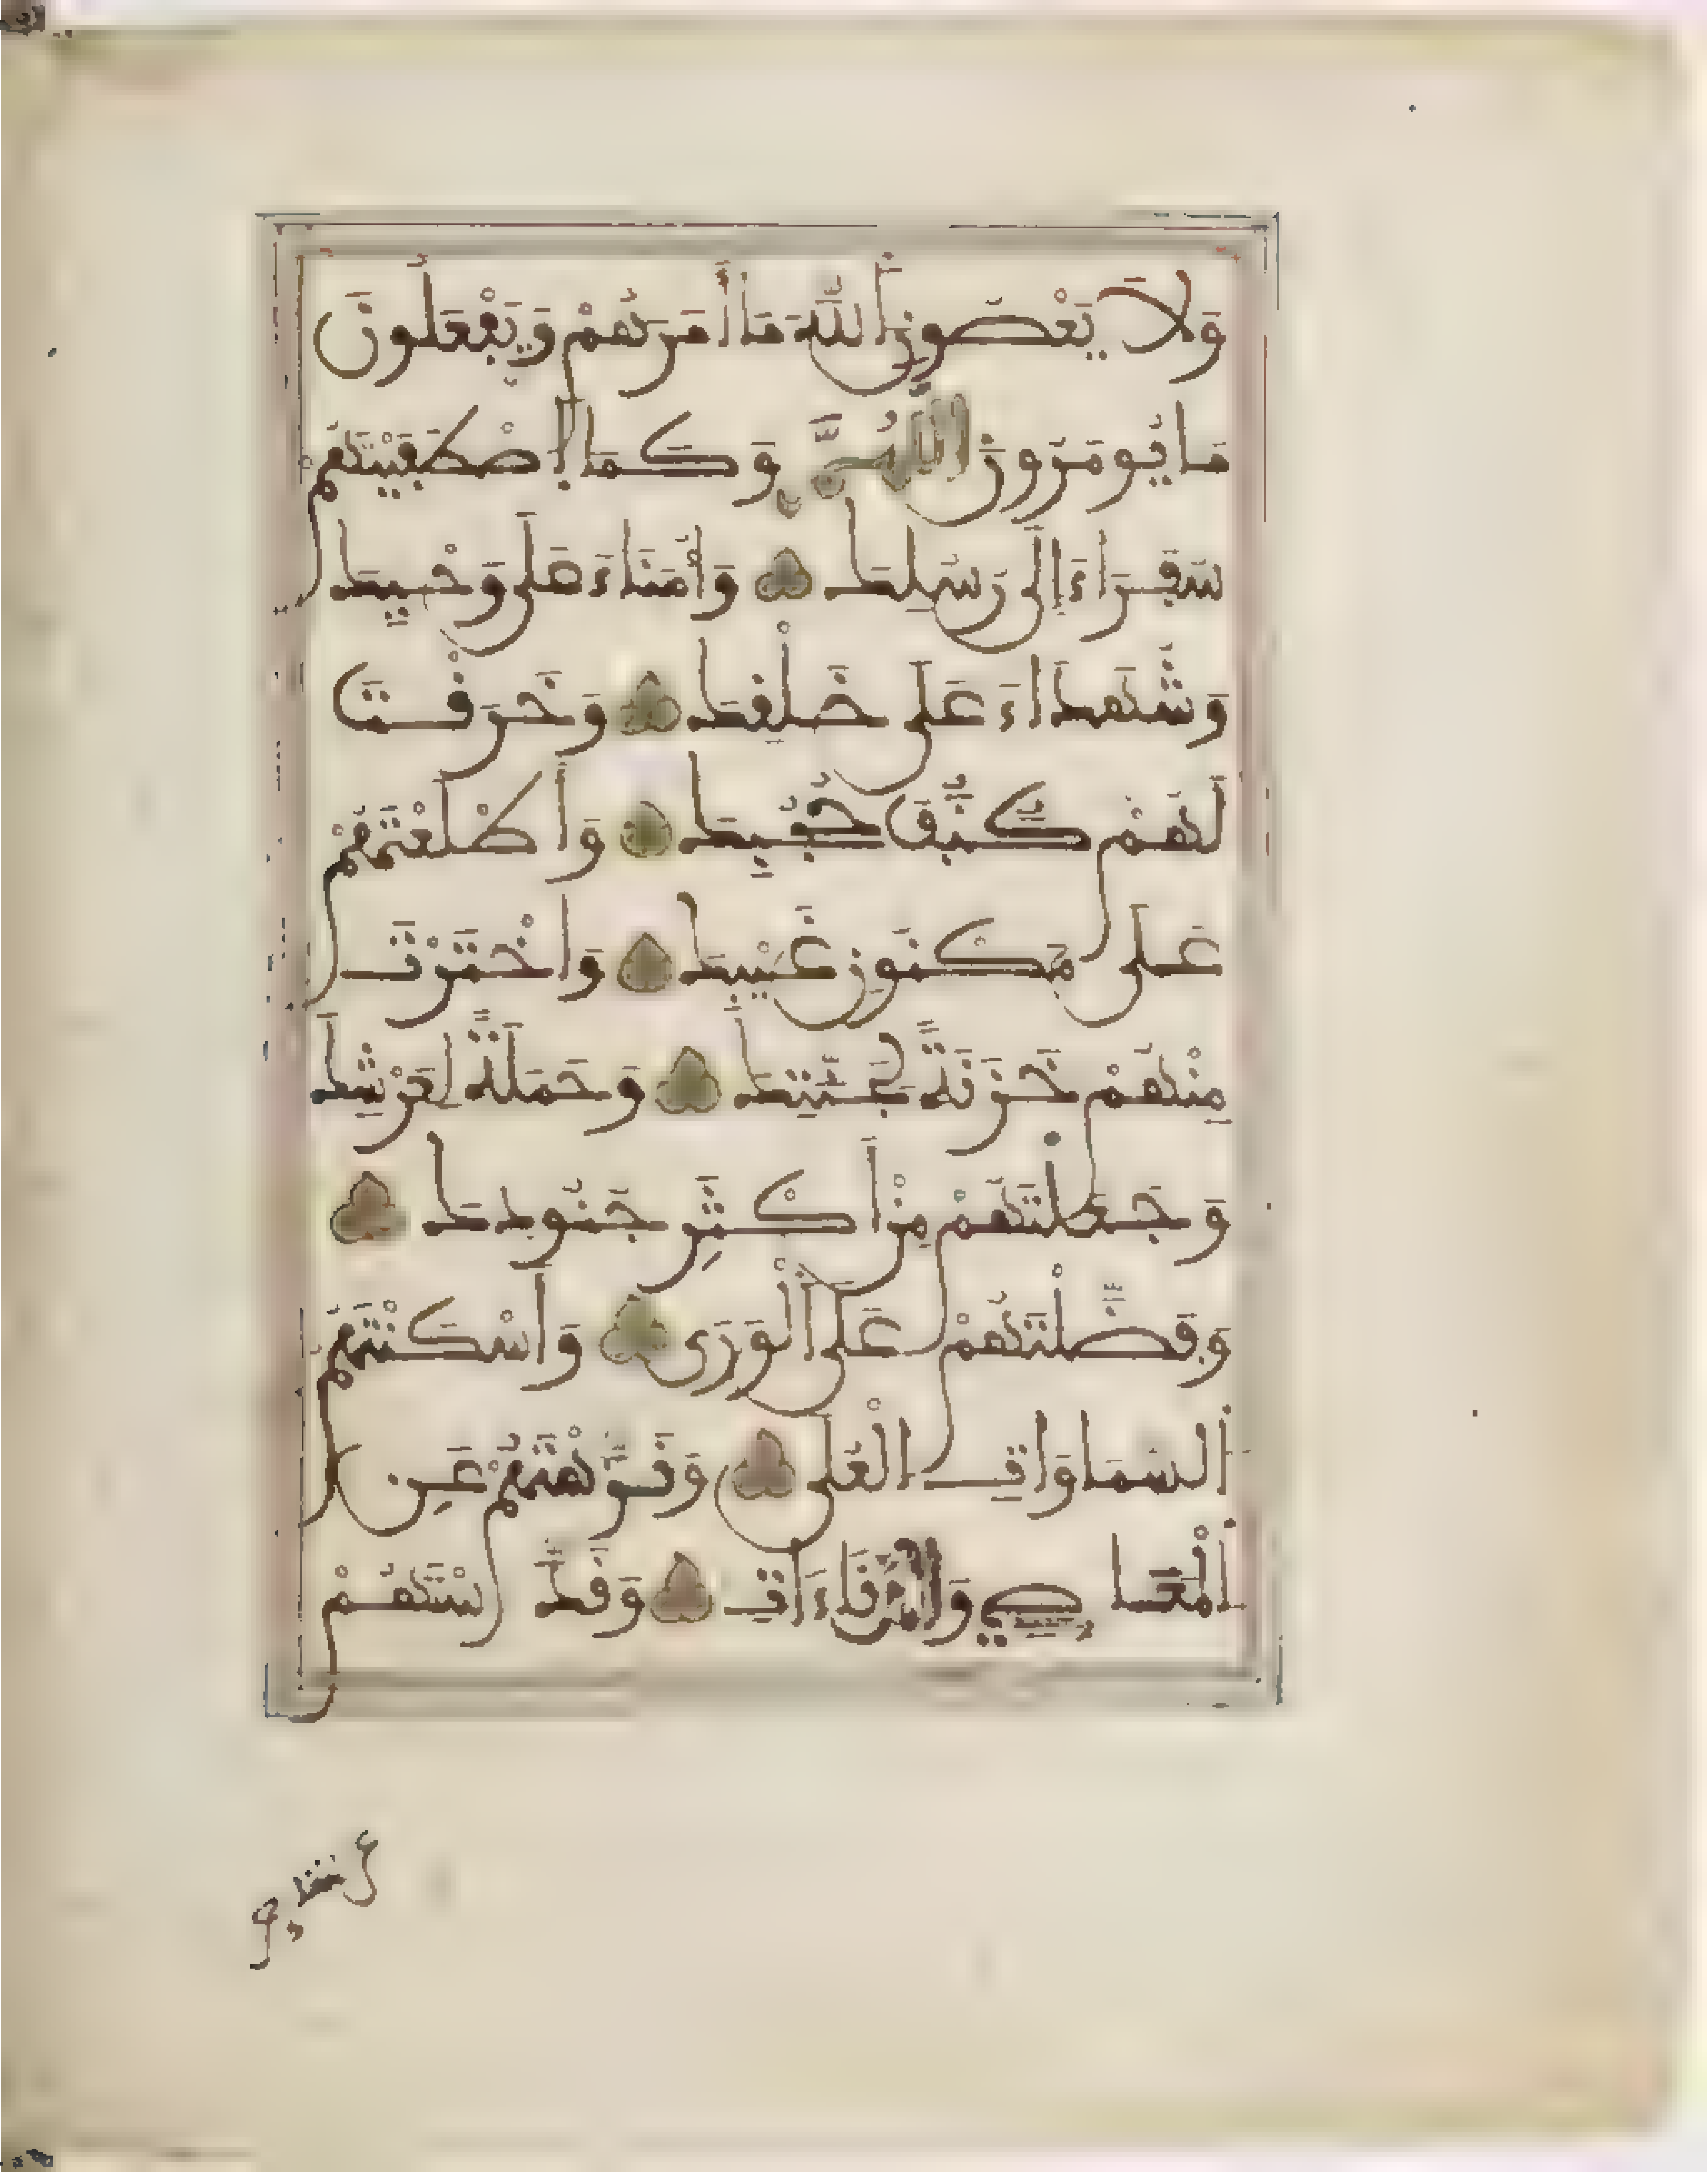 وَلَا يَعْصُونَ اللَّهَ مَا أَمَرَهُمْ وَيَفْعَلُونَ
مَا يُومَرُونَ اللَّهُمَّ وَكَمَا اصْطَفَيْتَهُمْ
سُفَرَاءَ إِلَى رُسُلِكَ وَأُمَنَاءَ عَلَى وَحْيِكَ
وَشُهَدَاءَ عَلَى خَلْفِكَ وَخَرَفْتَ
لَهُمْ كُنُفَ حُجُبِكَ وَأَطْلَعْتَهُمْ
عَلَى مَكْنُونِ غَيْبِكَ وَاخْتَرْتَ
مِنْهُمْ خَزَنَةً لِجَنَّتِكَ وَحَمَلَةً لِعَرْشِكَ
وَجَعَلْتَهُمْ مِنْ أَكْثَرِ جُنُودِكَ
وَفَضَّلْتَهُمْ عَلَى الْوَرَى وَأَسْكَنْتَهُمُ
السَّمَاوَاتِ الْعُلَى وَنَزَّهْتَهُمْ عَنِ
الْمَعَاصِي وَالدَّنَاءَاتِ وَقَدَّسْتَهُمْ